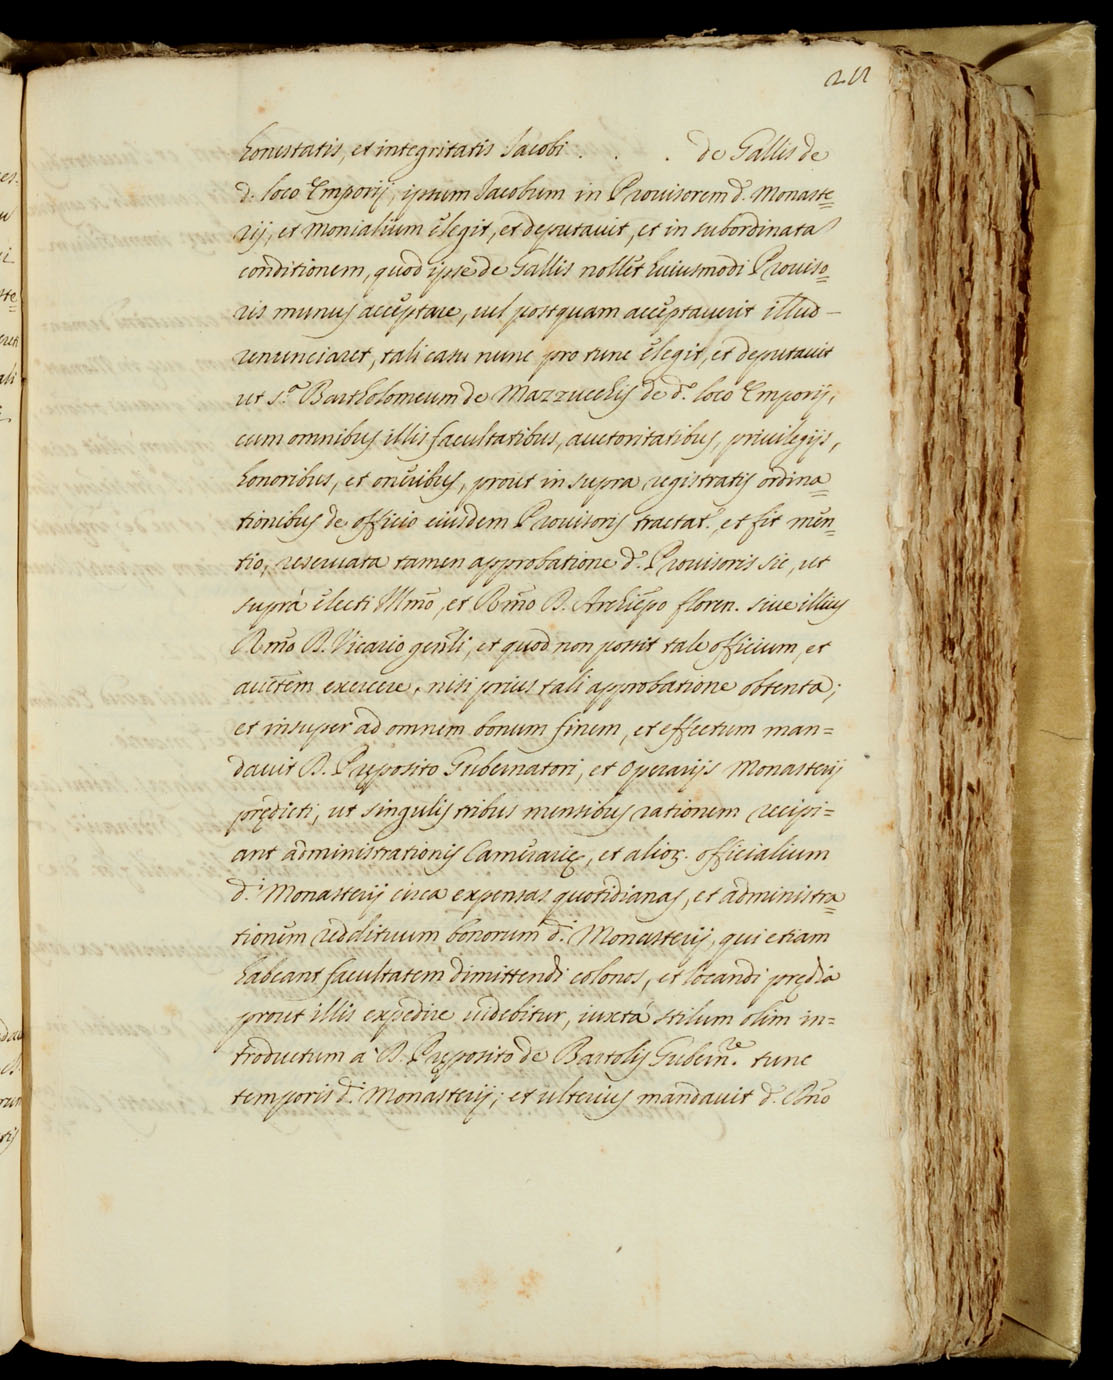 211
honestatis, et integritatis Jacobi . . . de Gallis de
d. loco Emporij, ipsum Jacobum in Provisorem d. Monaste=
rij, et Monialium elegit, et deputavit, et in subordinata
conditionem, quod ipse de Gallis nollet huiusmodi Proviso=
ris munus acceptare, vel postquam acceptaverit illud -
renunciaret, tali casu nunc pro tunc elegit, et deputavit
ut s.r Bartholomeum de Mazzucchijs de d.o loco Emporij,
cum omnibus illis facultatibus, auctoritatibus, privilegijs,
honoribus, et oneribus, prout in supra registratis ordina=
tionibus de officio eiusdem Provisoris tractat.r et fit men=
tio, reservata tamen approbatione d. Provisoris sic, ut
suprà electi Illmo, et Rmo D. Archiepo floren. sive illius
Rmo D. Vicario genli, et quod non possit tale officium, et
auctem exercere, nisi prius tali approbatione obtenta;
et insuper ad omnem bonum finem, et effectum man=
davit D. Preposito Gubernatori, et Operarijs Monasterij
prędicti, ut singulis tribus mensibus rationem recipi=
ant administrationis Camerarię, et alior. officialium
d.i Monasterij circa expensas quotidianas, et administra=
tionem reddituum bonorum d.i Monasterij, qui etiam
habeant facultatem dimittendi colonos, et locandi prędia
prout illis expedire videbitur, iuxtà stilum olim in=
troductum à D. Pręposito de Bartolis Gubern.re tunc
temporis d.i Monasterij; et ulterius mandavit d. Rmo